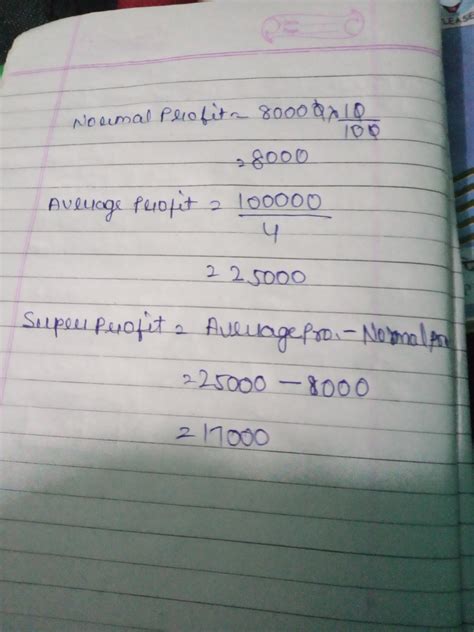 Normal Profit = 80000 x 10
100
= 8000
Average Profit = 100000
4
= 25000
Super Profit = Average Pro. - Normal Pro
= 25000 - 8000
= 17000